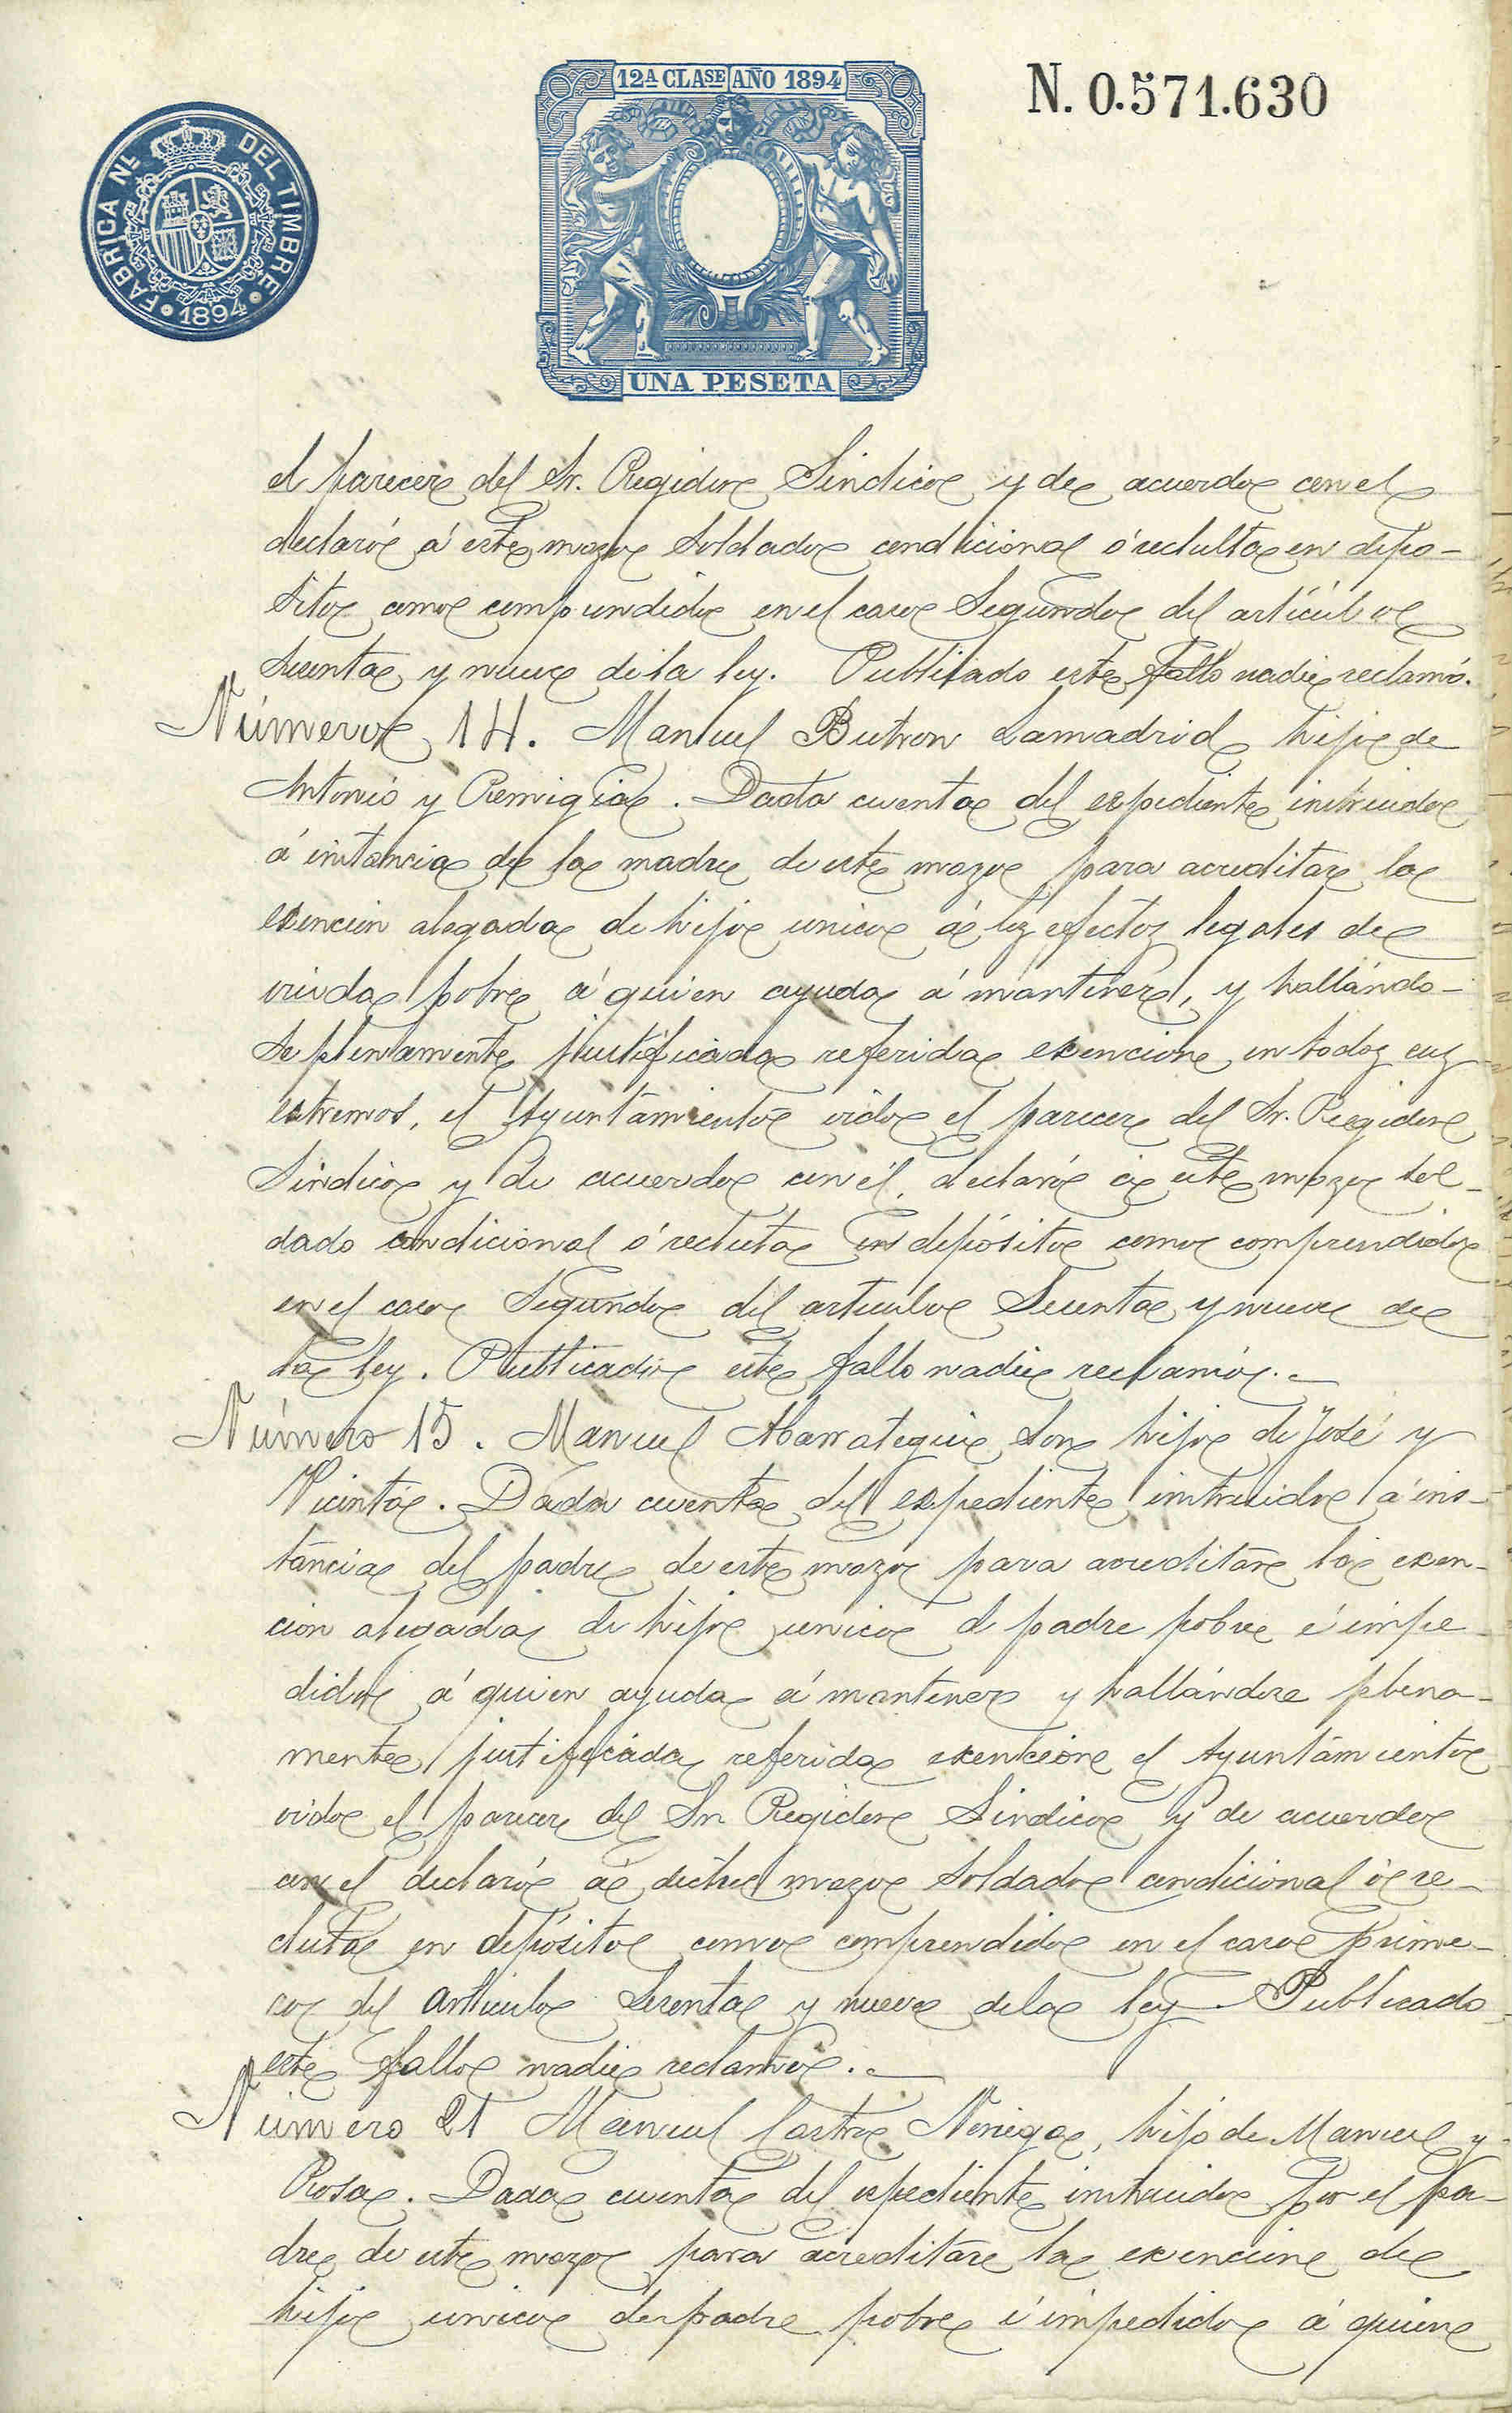 FABRICA NL DEL TIMBRE
1894
12A CLASE AÑO 1894
UNA PESETA
N. 0.571.630
el parecer del Sr. Regidor Sindico y de acuerdo con el
declaró á este mozo Soldado condicional ó recluta en depo-
sito como comprendido en el caso Segundo del artículo
sesenta y nueve de la ley. Publicado este fallo nadie reclamó.
Número 14. Manuel Butron Lamadrid hijo de
Antonio y Remigia. Dada cuenta del espediente instruido
á instancia de la madre de este mozo para acreditar la
exencion alegada de hijo unico á los efectos legales de
viuda pobre á quien ayuda á mantener, y hallándo-
se plenamente justificada referida exencion en todos sus
estremos, el Ayuntamiento oido el parecer del Sr. Regidor
Sindico y de acuerdo con él, declaró á este mozo sol-
dado condicional ó recluta en depósito como comprendido
en el caso Segundo del articulo Sesenta y nueve de
la ley. Publicado este fallo nadie reclamó.
Número 15. Manuel Abarrategui Son hijo de José y
Vicenta. Dada cuenta del espediente instruido á ins-
tancia del padre de este mozo para acreditar la exen-
cion alegada de hijo unico de padre pobre é impe-
dido á quien ayuda á mantener y hallándose plena-
mente justificada referida exencion el Ayuntamiento
oido el parecer del Sr. Regidor Sindico y de acuerdo
con el declaró á dicho mozo Soldado condicional ó re-
cluta en depósito como comprendido en el caso prime-
ro del articulo Sesenta y nueve de la ley. Publicado
este fallo nadie reclamó.
Número 21 Manuel Castro Noriega, hijo de Manuel y
Rosa. Dada cuenta del espediente instruido por el pa-
dre de este mozo para acreditar la exencion de
hijo unico de padre pobre é impedido á quien